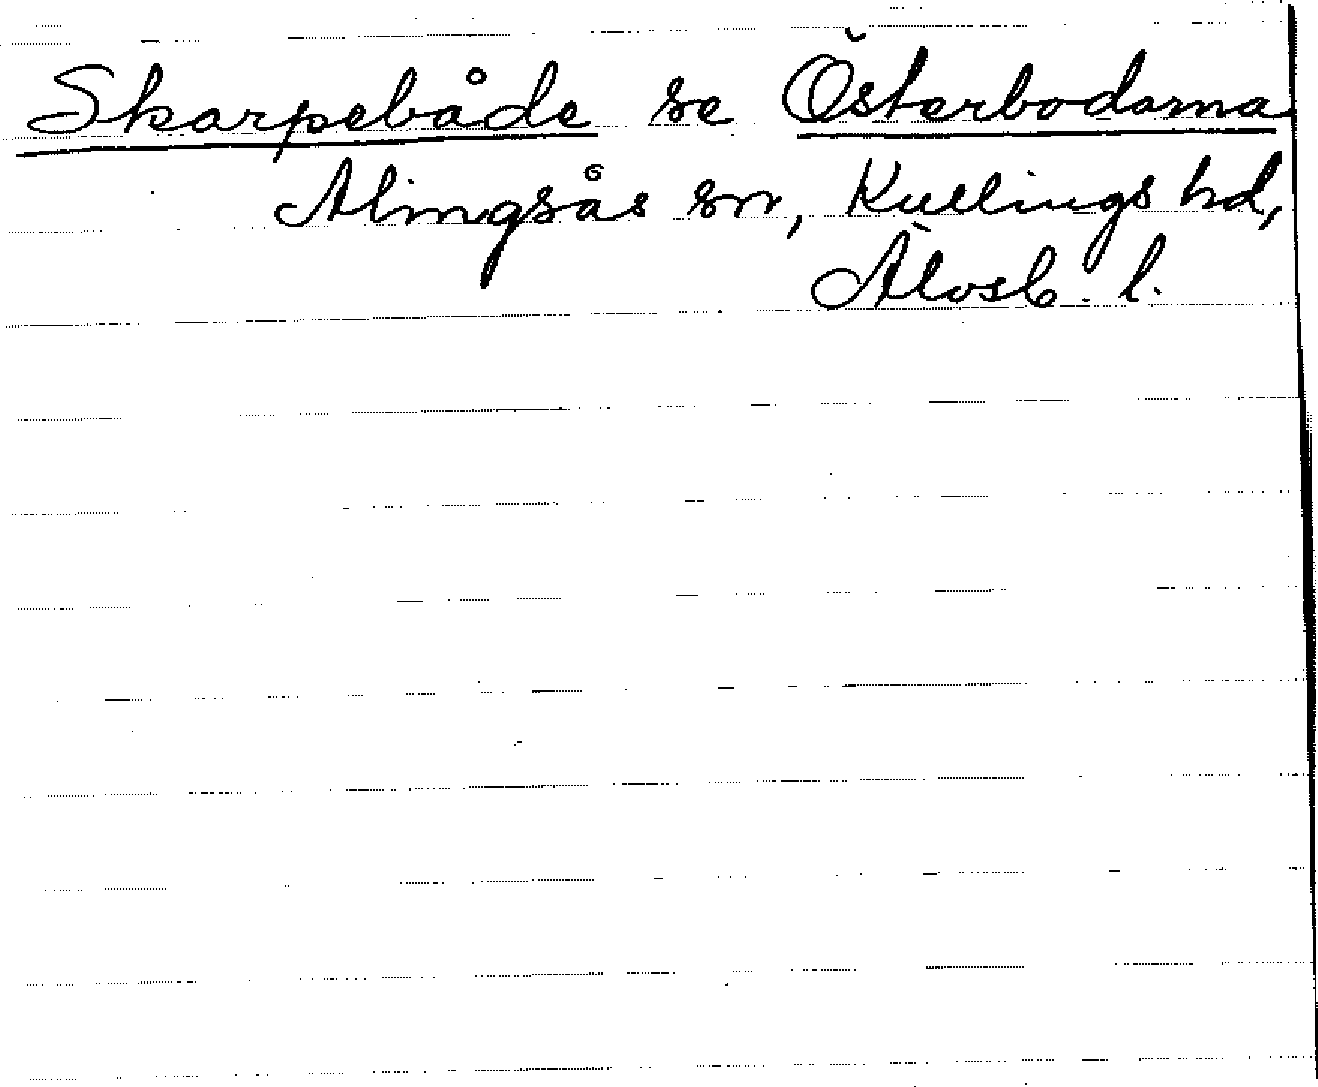 Skarpebåde se Österbodarna
Alingsås sn, Kullings hd,
Älvsb. l.